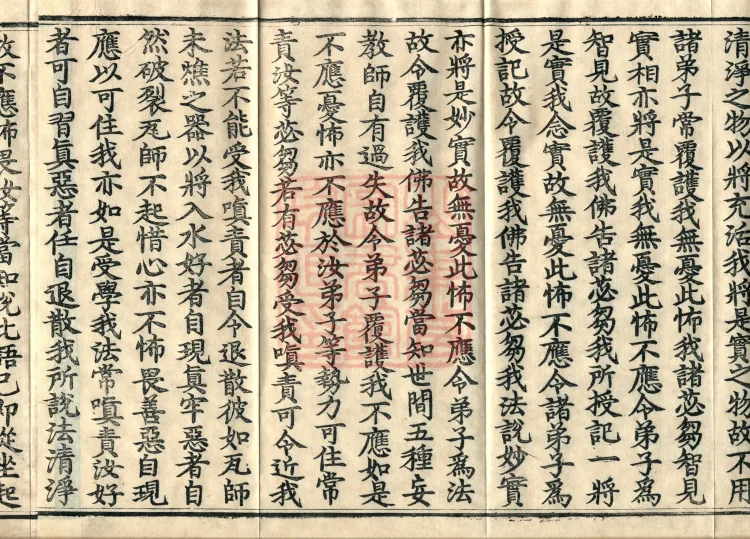 清淨之物以將充活我將是實之物故不用
諸弟子常覆護我無憂此怖我諸苾芻智見
實相亦將是實我無憂此怖不應令弟子爲
智見故覆護我佛告諸苾芻我所授記一將
是實我念實故無憂此怖不應令諸弟子爲
授記故令覆護我佛告諸苾芻我法說妙實
亦將是妙實故無憂此怖不應令弟子爲法
故令覆護我佛告諸苾芻當知世間五種妄
教師自有過失故令弟子覆護我不應如是
不應憂怖亦不應於汝弟子等勢力可住常
責汝等苾芻若有苾芻受我嗔責可令近我
法若不能受我嗔責者自令退散彼如瓦師
未燋之器以將入水好者自現眞牢惡者自
然破裂瓦師不起惜心亦不怖畏善惡自現
應以可住我亦如是受學我法常嗔責汝好
者可自習眞惡者任自退散我所說法清淨
故不應怖畏汝等當知說此語已即從坐起